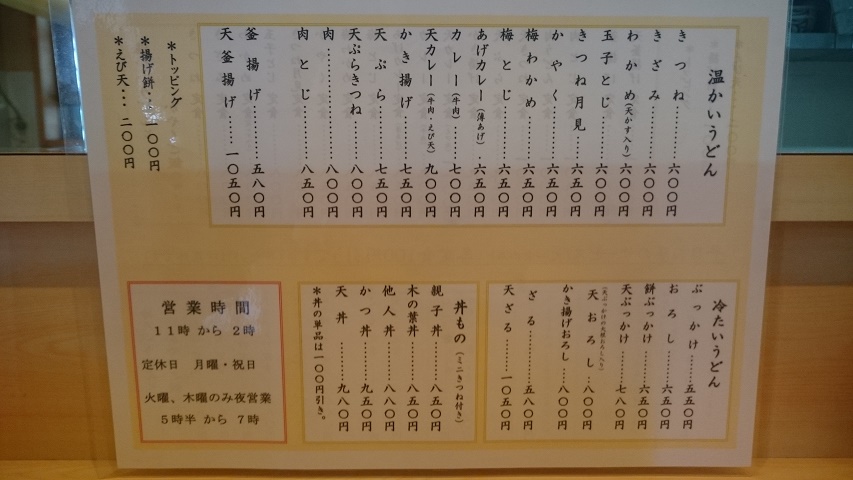 温かいうどん
きつね………六〇〇円
きざみ………六〇〇円
わかめ(天かす入り)六〇〇円
玉子とじ………六〇〇円
きつね月見……六五〇円
かやく………六五〇円
梅わかめ………六五〇円
梅とじ………六五〇円
あげカレー(薄あげ)…六五〇円
カレー(牛肉)………七〇〇円
天カレー(牛肉・えび天)九〇〇円
かき揚げ………七五〇円
天ぷら………七五〇円
天ぷらきつね……八〇〇円
肉………八〇〇円
肉とじ………八五〇円
釜揚げ………五八〇円
天釜揚げ……一〇五〇円
*トッピング
*揚げ餅…一〇〇円
*えび天…二〇〇円
冷たいうどん
ぶっかけ………五五〇円
おろし………六五〇円
餅ぶっかけ……六五〇円
天ぶっかけ……七八〇円
天おろし…八〇〇円
かき揚げおろし…八〇〇円
ざる………五八〇円
天ざる………一〇五〇円
丼もの(ミニきつね付き)
親子丼………八五〇円
木の葉丼………八五〇円
他人丼………八八〇円
かつ丼………九五〇円
天丼………九八〇円
*丼の単品は一〇〇円引き。
営業時間
11時 から 2時
定休日 月曜・祝日
火曜、木曜のみ夜営業
5時半 から 7時